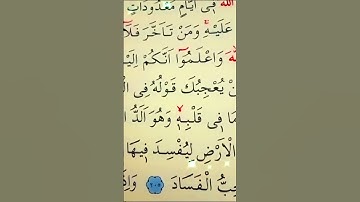 الله فِى اَيَّامٍ مَعْدُودَاتٍ
عَلَيْهِ وَمَنْ تَاَخَّرَ فَلَا
وَاعْلَمُوا اَنَّكُمْ اِلَيْ
نْ يُعْجِبُكَ قَوْلُهُ فِى ال
مَا فِى قَلْبِهِ وَهُوَ اَلَدُّ ا
الْاَرْضِ لِيُفْسِدَ فِيهَا
حِبُّ الْفَسَادَ ٢٠٥ وَاِذَ